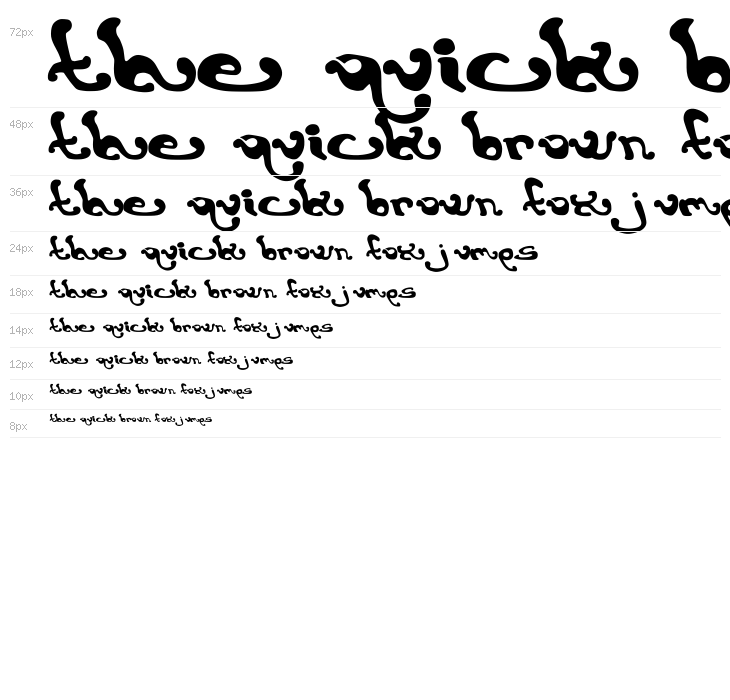 72px the quick b
48px the quick brown fo
36px the quick brown fox jump
24px the quick brown fox jumps
18px the quick brown fox jumps
14px the quick brown fox jumps
12px the quick brown fox jumps
10px the quick brown fox jumps
8px the quick brown fox jumps